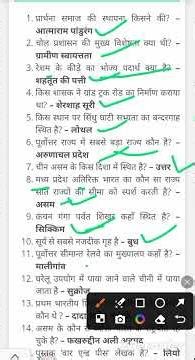 1. प्रार्थना समाज की स्थापना किसने की? –
आत्माराम पांडुरंग
2. चोल प्रशासन की मुख्य विशेषता क्या थी? –
ग्रामीण स्वायत्तता
3. रेशम के कीड़े का भोज्य पदार्थ क्या है? –
शहतूत की पत्ती
4. किस शासक ने ग्रांड ट्रंक रोड का निर्माण कराया
था? – शेरशाह सूरी
5. किस स्थान पर सिंधु घाटी सभ्यता का बन्दरगाह
स्थित है? – लोथल
6. पूर्वोत्तर राज्य में सबसे बड़ा राज्य कौन है? –
अरुणाचल प्रदेश
7. चीन असम के किस दिशा में स्थित है? – उत्तर
8. मध्य प्रदेश अतिरिक्त भारत का कौन सा राज्य
सात राज्यों की सीमा को स्पर्श करती है? –
असम
9. कंचन गंगा पर्वत शिखर कहाँ स्थित है? –
सिक्किम
10. सूर्य से सबसे नजदीक गृह है – बुध
11. पूर्वोत्तर सीमान्त रेलवे का मुख्यालय कहाँ है? –
मालीगांव
12. घरेलू उपयोग में पाया जाने वाले चीनी में पाया
जाता है – सुक्रोज
13. प्रथम भारतीय फि
कौन थे? – दादा
14. असम के कौन
चुके है? – फखरुद्दीन अली अहमद
पुस्तक 'वार एन्ड पीस' लेखक है? – लियो